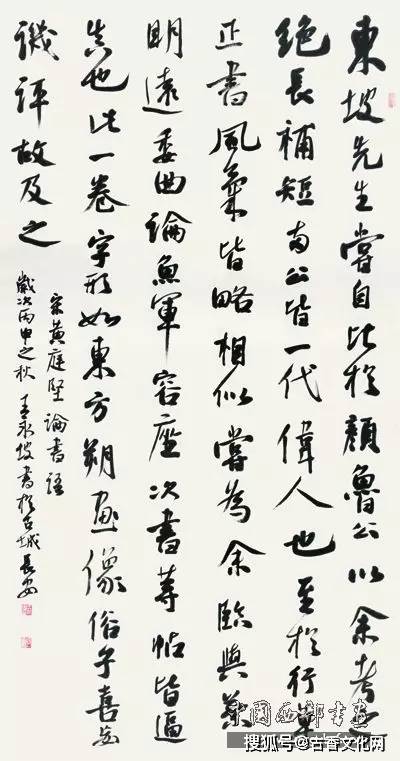 東坡先生嘗自比於顏魯公以余考之
絕長補短兩公皆一代偉人也至於行草
正書風氣皆略相似嘗為余臨與蔡
明遠委曲論魚軍容座次書等帖皆逼
真也此一卷字形如東方朔畫像俗子喜妄
譏評故及之
宋黃庭堅論書語
歲次丙申之秋 王永坡書於古城長安
中国西部书画
搜狐号@古香文化网